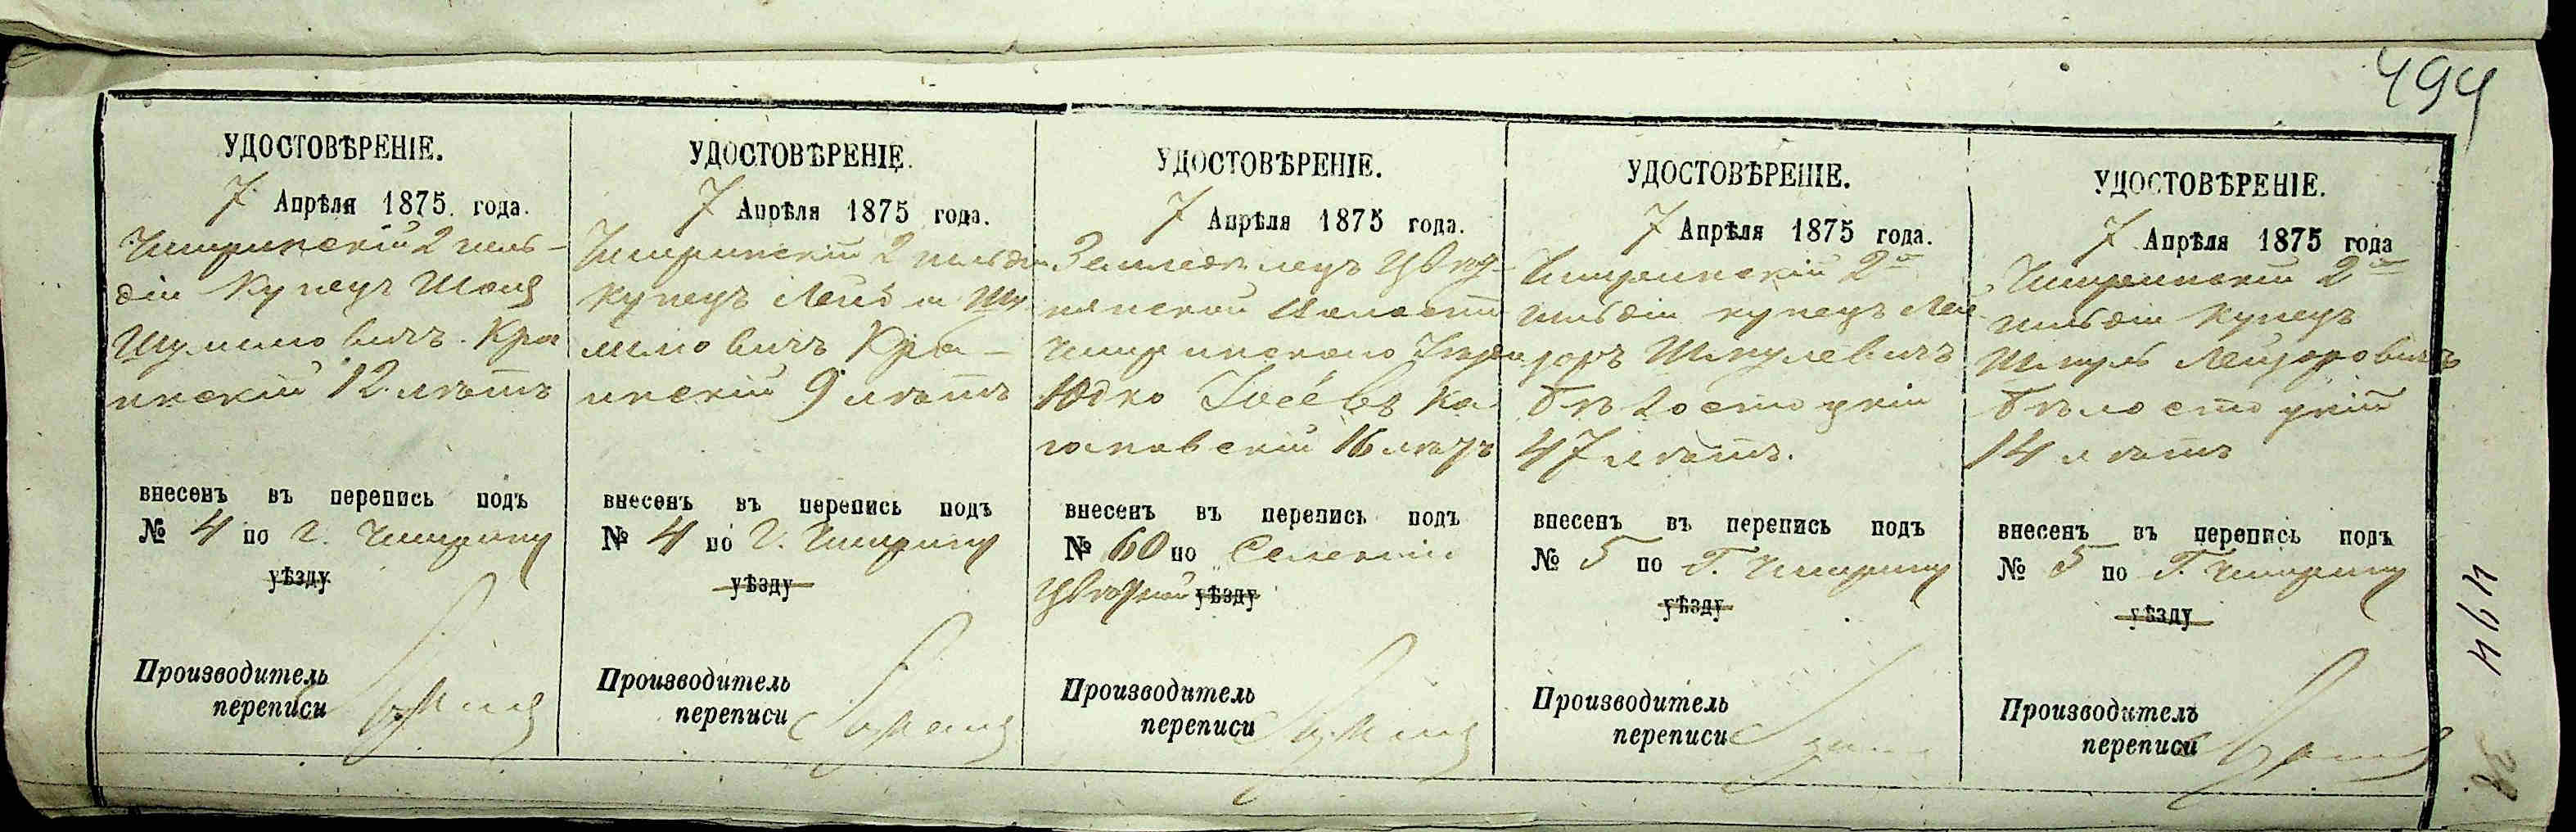 494
УДОСТОВѢРЕНІЕ.
7 Апрѣля 1875. года.
Чигиринскій 2 гиль-
діи Купецъ
Шулимовичъ. Кра
инскій 12 лѣтъ
внесенъ въ перепись подъ
№ 4 по г. Чигирину
уѣзду
Производитель
переписи
УДОСТОВѢРЕНІЕ.
7 Апрѣля 1875 года.
Чигиринскій 2 гильдіи
купецъ Лейба Шу
лимовичъ Кра-
инскій 9 лѣтъ
внесенъ въ перепись подъ
№ 4 по г. Чигирину
уѣзду
Производитель
переписи
УДОСТОВѢРЕНІЕ.
7 Апрѣля 1875 года.
Земледѣлецъ
Волости
Чигиринскаго
Юдко Іосевъ Ка
гановскій 16 лѣтъ
внесенъ въ перепись подъ
№ 60 по Селенію
уѣзду
Производитель
переписи
УДОСТОВѢРЕНІЕ.
7 Апрѣля 1875 года.
Чигиринскій 2й
гильдіи купецъ Лей
зоръ Шмулевичъ
Бѣлостоцкій
47 лѣтъ.
внесенъ въ перепись подъ
№ 5 по Г. Чигирину
уѣзду
Производитель
переписи
УДОСТОВѢРЕНІЕ.
7 Апрѣля 1875 года
Чигиринскій 2й
гильдіи Купецъ
Шмуль Лейзоровичъ
Бѣлостоцкій
14 лѣтъ
внесенъ въ перепись подъ
№ 5 по Г. Чигирину
уѣзду
Производитель
переписи
494